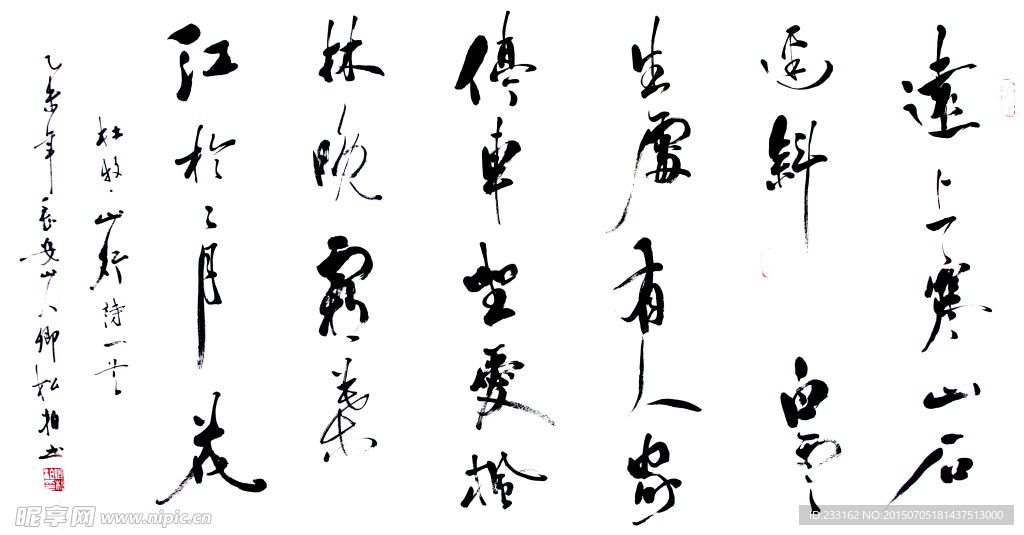 遠上寒山石
逕斜白雲
生處有人家
停車坐愛楓
林晚霜葉
紅於二月花
杜牧山行詩一首
乙未年長安山人松柏书
昵享网 www.nipic.cn
ID:233162 NO:20150705181437513000